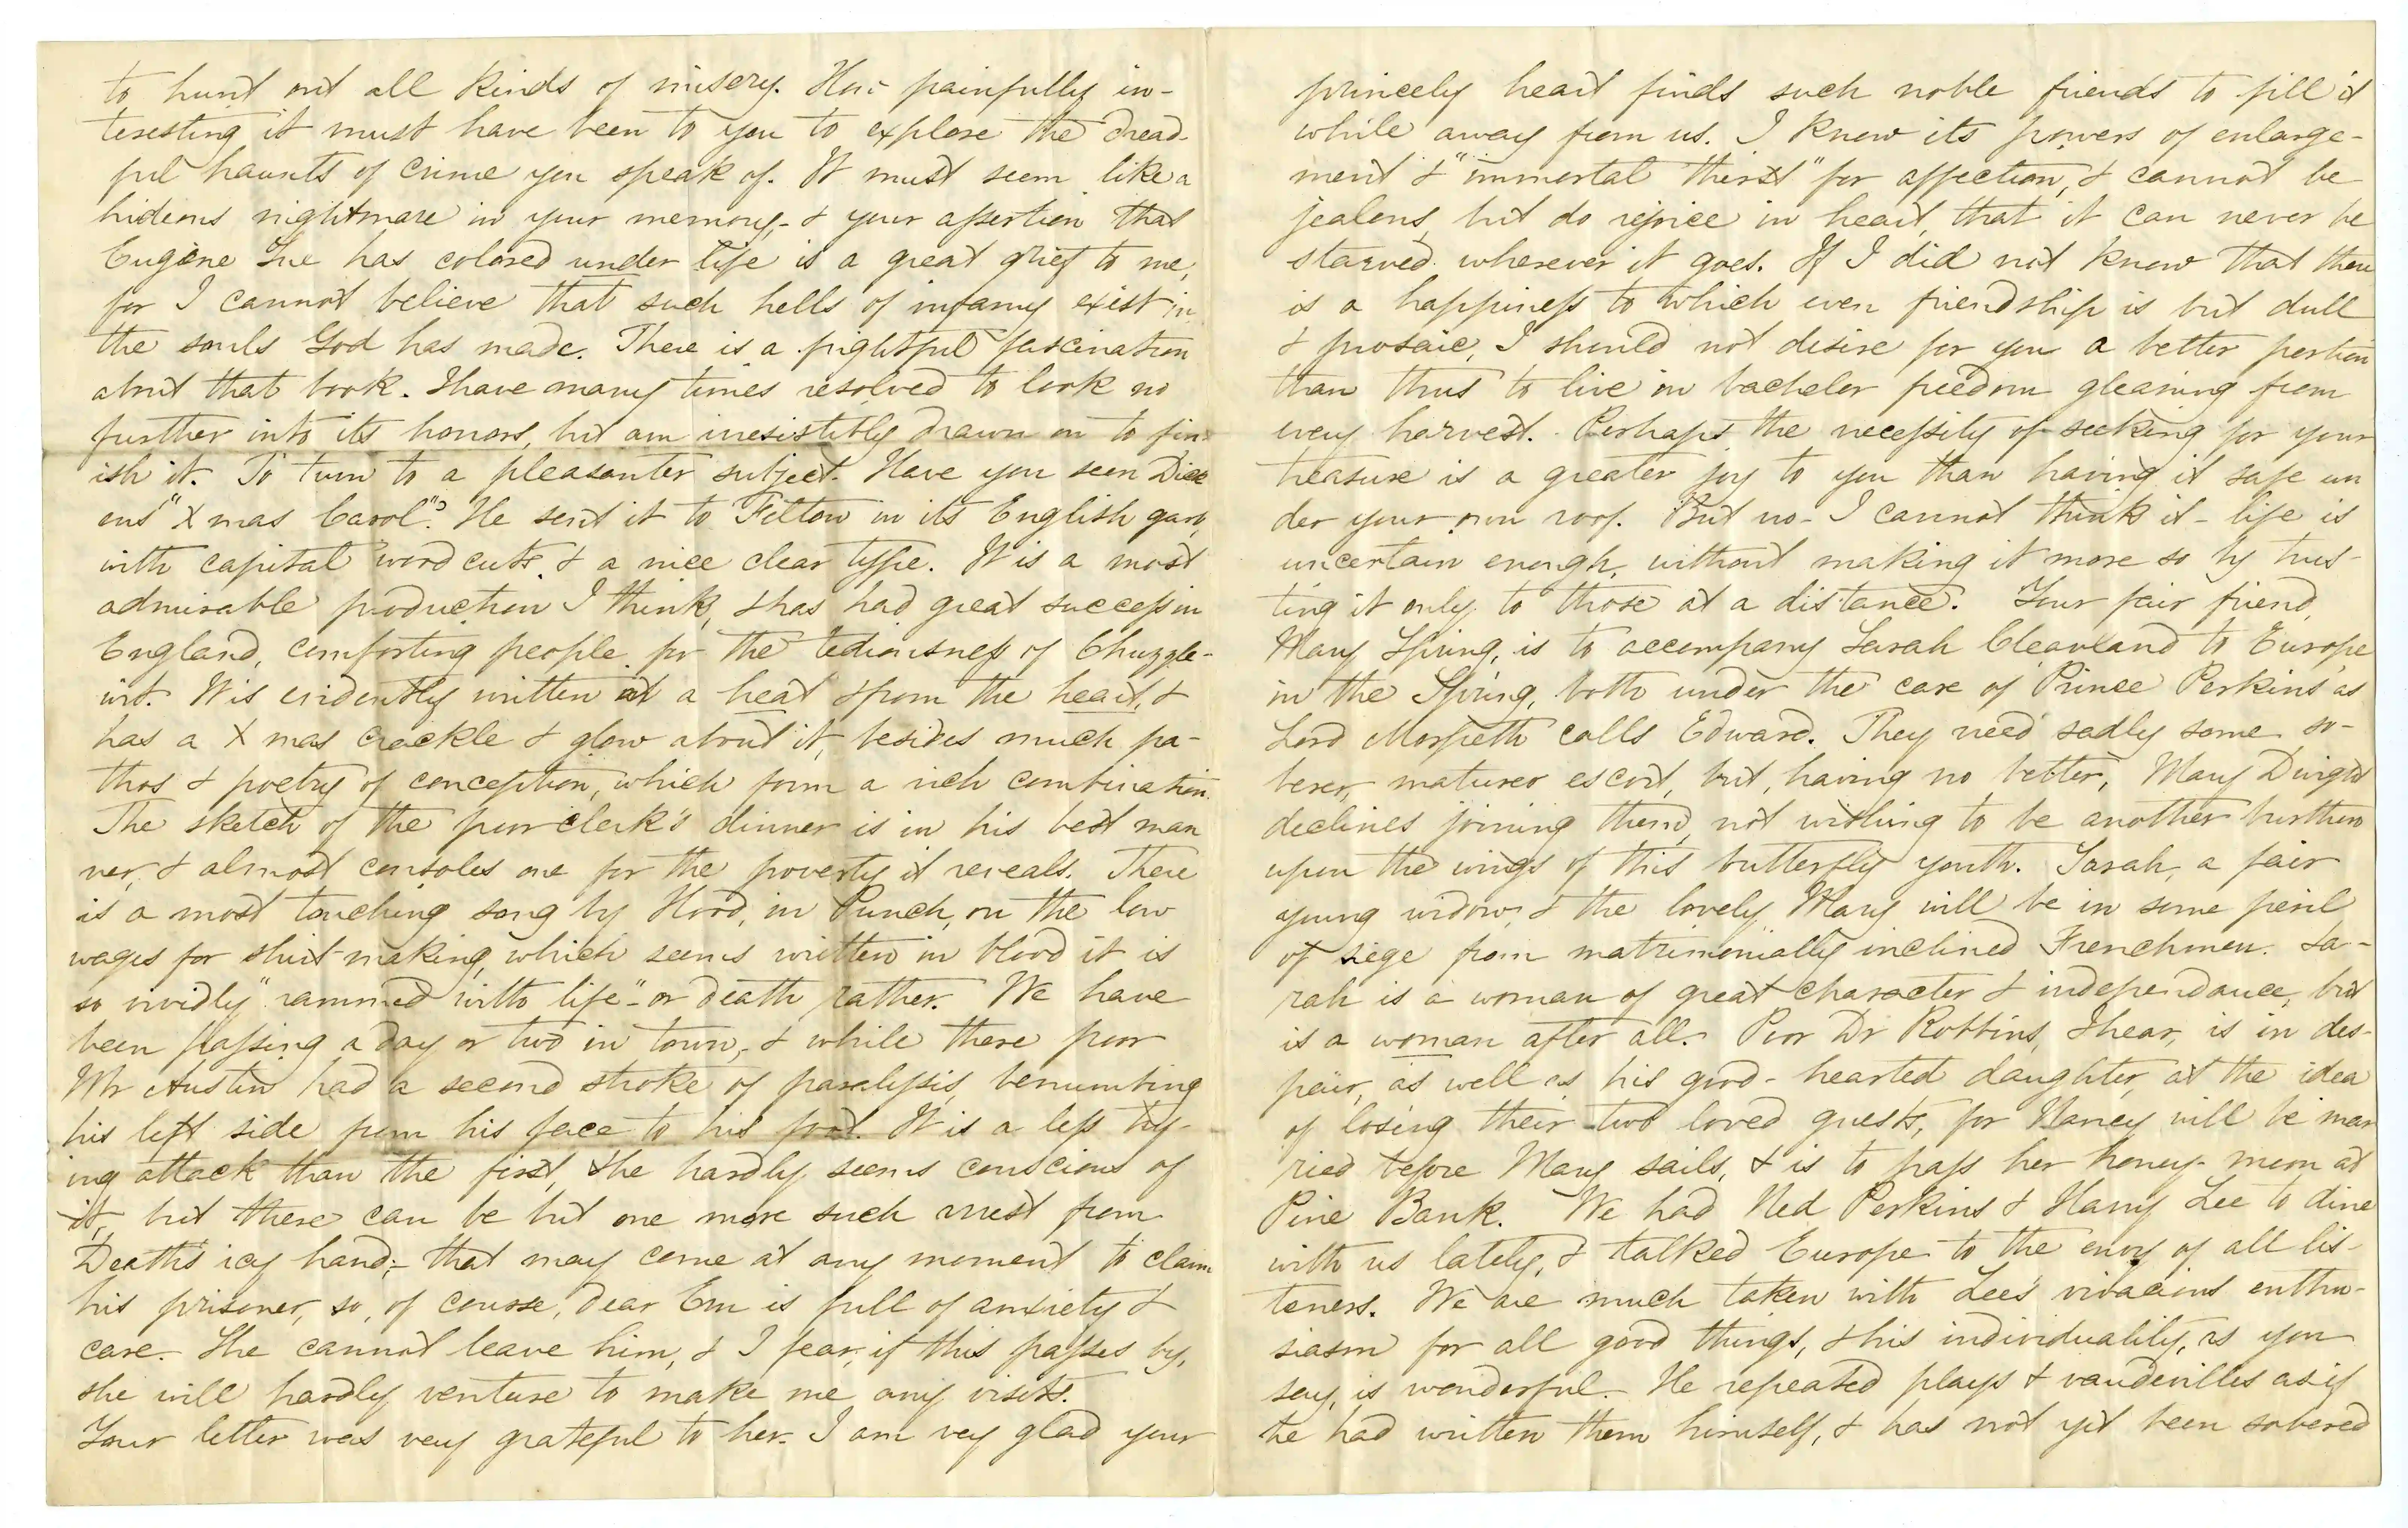 to hunt out all kinds of misery. How painfully in-
teresting it must have been to you to explore the dread-
ful haunts of crime you speak of. It must seem like a
hideous nightmare in your memory,- & your assertion that
Eugène Sue has colored under life is a great grief to me,
for I cannot believe that such hells of infamy exist in
the souls God has made. There is a frightful fascination
about that book. I have many times resolved to look no
further into its horrors, but am irresistibly drawn on to fin-
ish it. To turn to a pleasanter subject. Have you seen Dick
ens' "Xmas Carol"? He sent it to Felton in its English garb,
with capital wood cuts & a nice clear type. It is a most
admirable production I think, & has had great success in
England, comforting people for the tediousness of Chuzzle-
wit. It is evidently written at a heat & from the heart, &
has a Xmas crackle & glow about it, besides much pa-
thos & poetry of conception, which form a rich combination.
The sketch of the poor clerk's dinner is in his best man
ner, & almost consoles one for the poverty it reveals. There
is a most touching song by Hood, in Punch, on the low
wages for shirt making, which seems written in blood it is
so vividly "rammed with life"- or death rather. We have
been passing a day or two in town,- & while there poor
Mr Austin had a second stroke of paralysis, benumbing
his left side from his face to his foot. It is a less try-
ing attack than the first, & he hardly seems conscious of
it, but there can be but one more such arrest from
Death's icy hand;- that may come at any moment to claim
his prisoner, so, of course, dear Em is full of anxiety &
care. She cannot leave him, & I fear, if this passes by,
she will hardly venture to make me any visits.
Your letter was very grateful to her. I am very glad your
princely heart finds such noble friends to fill it
while away from us. I know its powers of enlarge-
ment & "immortal thirst" for affection, & cannot be
jealous, but do rejoice in heart, that it can never be
starved wherever it goes. If I did not know that there
is a happiness to which even friendship is but dull
& prosaic, I should not desire for you a better portion
than thus to live in bachelor freedom gleaning from
every harvest. Perhaps the necessity of seeking for your
treasure is a greater joy to you than having it safe un
der your own roof. But no- I cannot think it- life is
uncertain enough, without making it more so by trus-
ting it only to those at a distance. Your fair friend,
Mary Spring, is to accompany Sarah Cleavland to Europe
in the Spring, both under the care of Prince Perkins as
Lord Morpeth calls Edward. They need sadly some so-
berer, maturer escort, but, having no better, Mary Dwight
declines joining them, not wishing to be another burthen
upon the wings of this butterfly youth. Sarah, a fair
young widow, & the lovely Mary will be in some peril
of siege from matrimonially inclined Frenchmen. Sa-
rah is a woman of great character & independance, but
is a woman after all. Poor Dr Robbins, I hear, is in des-
pair, as well as his good-hearted daughter, at the idea
of losing their two loved guests, for Nancy will be mar
ried before Mary sails, & is to pass her honey-moon at
Pine Bank. We had Ned Perkins & Harry Lee to dine
with us lately, & talked Europe to the envy of all lis-
teners. We are much taken with Lee's vivacious enthu-
siasm for all good things, & his individuality, as you
say, is wonderful. He repeated plays & vaudevilles as if
he had written them himself, & has not yet been sobered